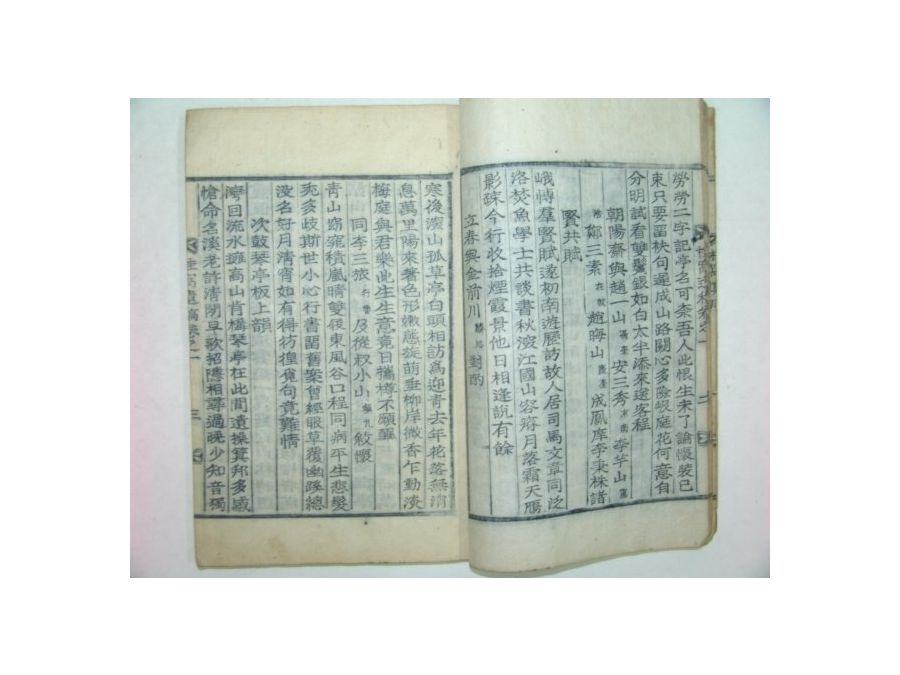 勞勞二字記亭名可柰吾人此恨生未了論懷裝已
束只要留袂句遲成山路關心多險峴庭花何意自
分明試看雙鬢銀如白太半添來送客程
朝陽齋與趙一山 安三秀 李芋山
鄭三素 趙晦山 成鳳 李秉株諸
賢共賦
峨愽羣賢賦遂初南遊歷訪故人居司馬文章同泛
洛焚魚學士共談書秋深江國山容瘠月落霜天鴈
影踈今行收拾煙霞景他日相逢說有餘
立春與金前川 對酌
寒後深山孤草亭白頭相訪爲迎青去年花落無消
息萬里陽來著色形嫩態旋萌垂柳岸微香乍動淡
梅庭與君樂此生生意竟日携樽不願醒
同李三旅 及從叔小山 敘懷
青山窈窕積嵐晴雙屐東風谷口程同病平生悲髮
禿多歧斯世小心行書留舊案曾經眼草覆幽蹊總
沒名好月淸宵如有得彷徨覓句竟難情
次鼓琴亭板上韻
灣回流水擁高山肯構琴亭在此間遺操箕邦多感
愴命名溪老許清閑早歌招隱相尋過晩少知音獨
遺稿卷之一 三